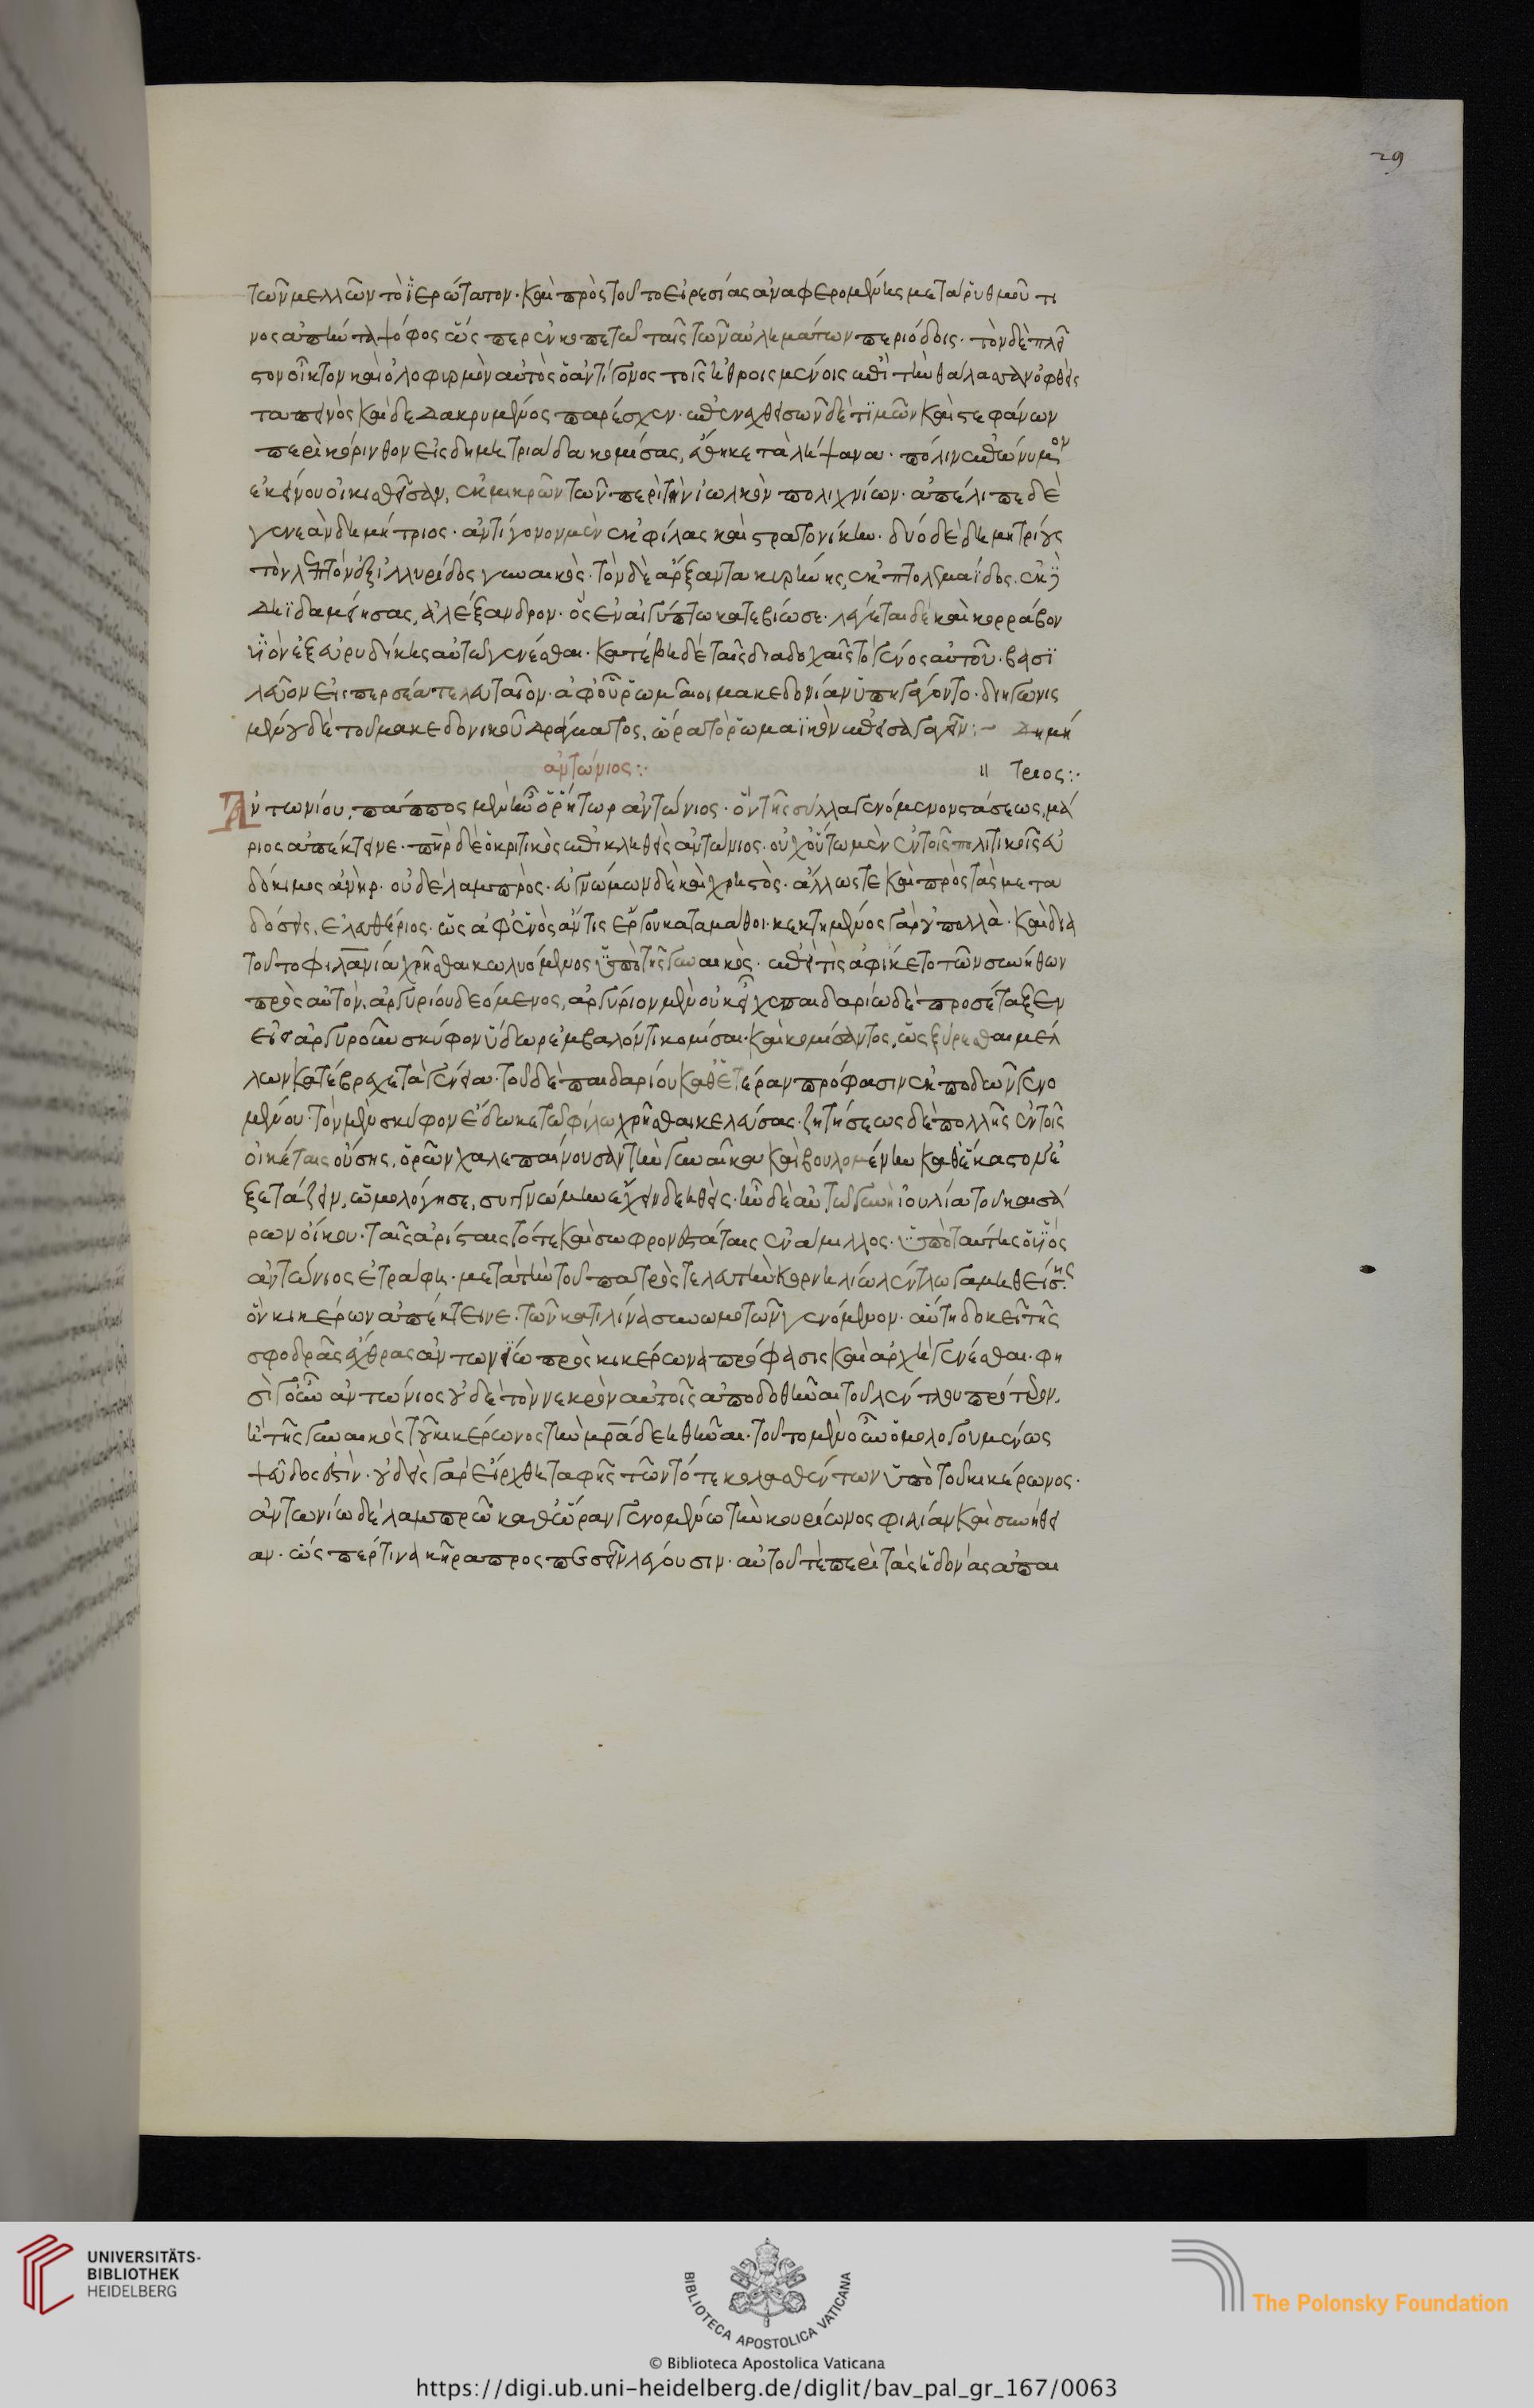 29
τῶν μελῶν τὸ ἱερώτατον· καὶ πρὸς τοῦτο εἰρεσίας ἀναφερομένης μετὰ ῥυθμοῦ τι
νος ἀπήντα ψόφος ὥσπερ ἐν κοπετῶ ταῖς τῶν αὐλημάτων περιόδοις· τὸν δὲ πλεῖ
στον οἶκτον καὶ ὀλοφυρμὸν αὐτὸς ὁ ἀντίγονος τοῖς ἠθροισμένοις ἐπὶ τὴν θάλασσαν ὀφθεὶς
ταπεινὸς καὶ δεδακρυμένος παρέσχεν· ἐπενεχθεισῶν δὲ τιμῶν καὶ στεφάνων
περὶ κόρινθον εἰς δημητριάδα κομίσας, ἔθηκε τὰ λείψανα· πόλιν ἐπώνυμον
ἐκείνου οἰκισθεῖσαν, ἐκ μικρῶν τῶν περὶ τὴν ἰωλκὸν πολιχνίων· ἀπέλιπε δὲ
γενεὰν δημήτριος· ἀντίγονον μὲν ἐκ φίλας καὶ στρατονίκην· δύο δὲ δημητρίους
τὸν λεπτὸν ἐξ ἰλλυρίδος γυναικός· τὸν δὲ ἄρξαντα κυρήνης, ἐκ πτολεμαΐδος· ἐκ
δηϊδαμείας, ἀλέξανδρον· ὃς ἐν αἰγύπτω κατεβίωσε· λέγεται δὲ καὶ κορράβον
υἱὸν ἐξ εὐρυδίκης αὐτῶ γενέσθαι· κατέβη δὲ ταῖς διαδοχαῖς τὸ γένος αὐτοῦ· βασι
λεῦον εἰς περσέα τελευταῖον· ἀφ' οὗ ῥωμαῖοι μακεδονίαν ὑπηγάγοντο· διηγωνισ
μένου δὲ τοῦ μακεδονικοῦ δράματος, ὥρα τὸ ῥωμαϊκὸν ἐπεισαγαγεῖν:– Δημή
τριος:·
ἀντώνιος:·
Ἀντωνίου, πάππος μὲν ἦν ὁ ῥήτωρ ἀντώνιος· ὃν τῆς σύλλα γενόμενον στάσεως, μά
ριος ἀπέκτεινε· πὴρ δὲ ὁ κριτικὸς ἐπικληθεὶς ἀντώνιος· οὐχ οὕτω μὲν ἐν τοῖς πολιτικοῖς εὐ
δόκιμος ἀνὴρ· οὐδὲ λαμπρὸς· εὐγνώμων δὲ καὶ χρηστὸς· ἄλλως τε καὶ πρὸς τὰς μετα
δόσεις, ἐλευθέριος· ὡς ἀφ' ἑνὸς ἄν τις ἔργου καταμάθοι· κεκτημένος γὰρ οὐ πολλὰ· καὶ διὰ
τοῦτο φιλανία χρῆσθαι κωλυόμενος ὑπὸ τῆς γυναικός· ἐπεί τις ἀφίκετο τῶν συνήθων
πρὸς αὐτὸν, ἀργυρίου δεόμενος, ἀργύριον μὲν οὐκ εἶχε παιδαρίω δὲ προσέταξεν
εἰς ἀργυροῦν σκύφον ὕδωρ ἐμβαλόντι κομίσαι· καὶ κομίσαντος, ὡς ξύρεσθαι μέλ
λων κατέβρεχε τὰ γένεια· τοῦ δὲ παιδαρίου καθ' ἑτέραν πρόφασιν ἐκποδὼν γενο
μένου· τὸν μὲν σκύφον ἔδωκε τῶ φίλω χρῆσθαι κελεύσας· ζητήσεως δὲ πολλῆς ἐν τοῖς
οἰκέταις οὔσης, ὁρῶν χαλεπαίνουσαν τὴν γυναῖκα καὶ βουλομένην καθ' ἕκαστον ἐ
ξετάζειν, ὡμολόγησε, συγγνώμην ἔχειν δεηθεὶς· ἦν δὲ αὐτῶ γυνὴ ἰουλία τοῦ καισά
ρων οἴκου· ταῖς ἀρίσταις τότε καὶ σωφρονεστάταις ἐνάμιλλος· ὑπὸ ταύτης ὁ υἱὸς
ἀντώνιος ἐτράφη· μετὰ τὴν τοῦ πατρὸς τελευτὴν κορνηλίω λέντλω γαμηθείσης
ὃν κικέρων ἀπέκτεινε· τῶν κατιλίνα συνωμοτῶν γενόμενον· αὕτη δοκεῖ τῆς
σφοδρᾶς ἔχθρας ἀντωνίω πρὸς κικέρωνα πρόφασις καὶ ἀρχὴ γενέσθαι· φη
σὶ γοῦν ἀντώνιος οὐδὲ τὸν νεκρὸν αὐτοῖς ἀποδοθῆναι τοῦ λέντλου πρότερον,
ἢ τῆς γυναικὸς τοῦ κικέρωνος τὴν μρα δεηθῆναι· τοῦτο μὲν οὖν ὁμολογουμένως
ψεῦδος ἐστίν· οὐδεὶς γὰρ εἴρχθη ταφῆς τῶν τότε κολασθέντων ὑπὸ τοῦ κικέρωνος·
ἀντωνίω δὲ λαμπρῶ καθ' ὥραν γενομένω τὴν κουρίωνος φιλίαν καὶ συνήθει
αν· ὥσπερ τινὰ κῆρα προσπεσεῖν λέγουσιν· αὐτοῦ τε περὶ τὰς ἡδονὰς ἀπαι
UNIVERSITÄTS-
BIBLIOTHEK
HEIDELBERG
BIBLIOTECA APOSTOLICA VATICANA
The Polonsky Foundation
© Biblioteca Apostolica Vaticana
https://digi.ub.uni-heidelberg.de/diglit/bav_pal_gr_167/0063